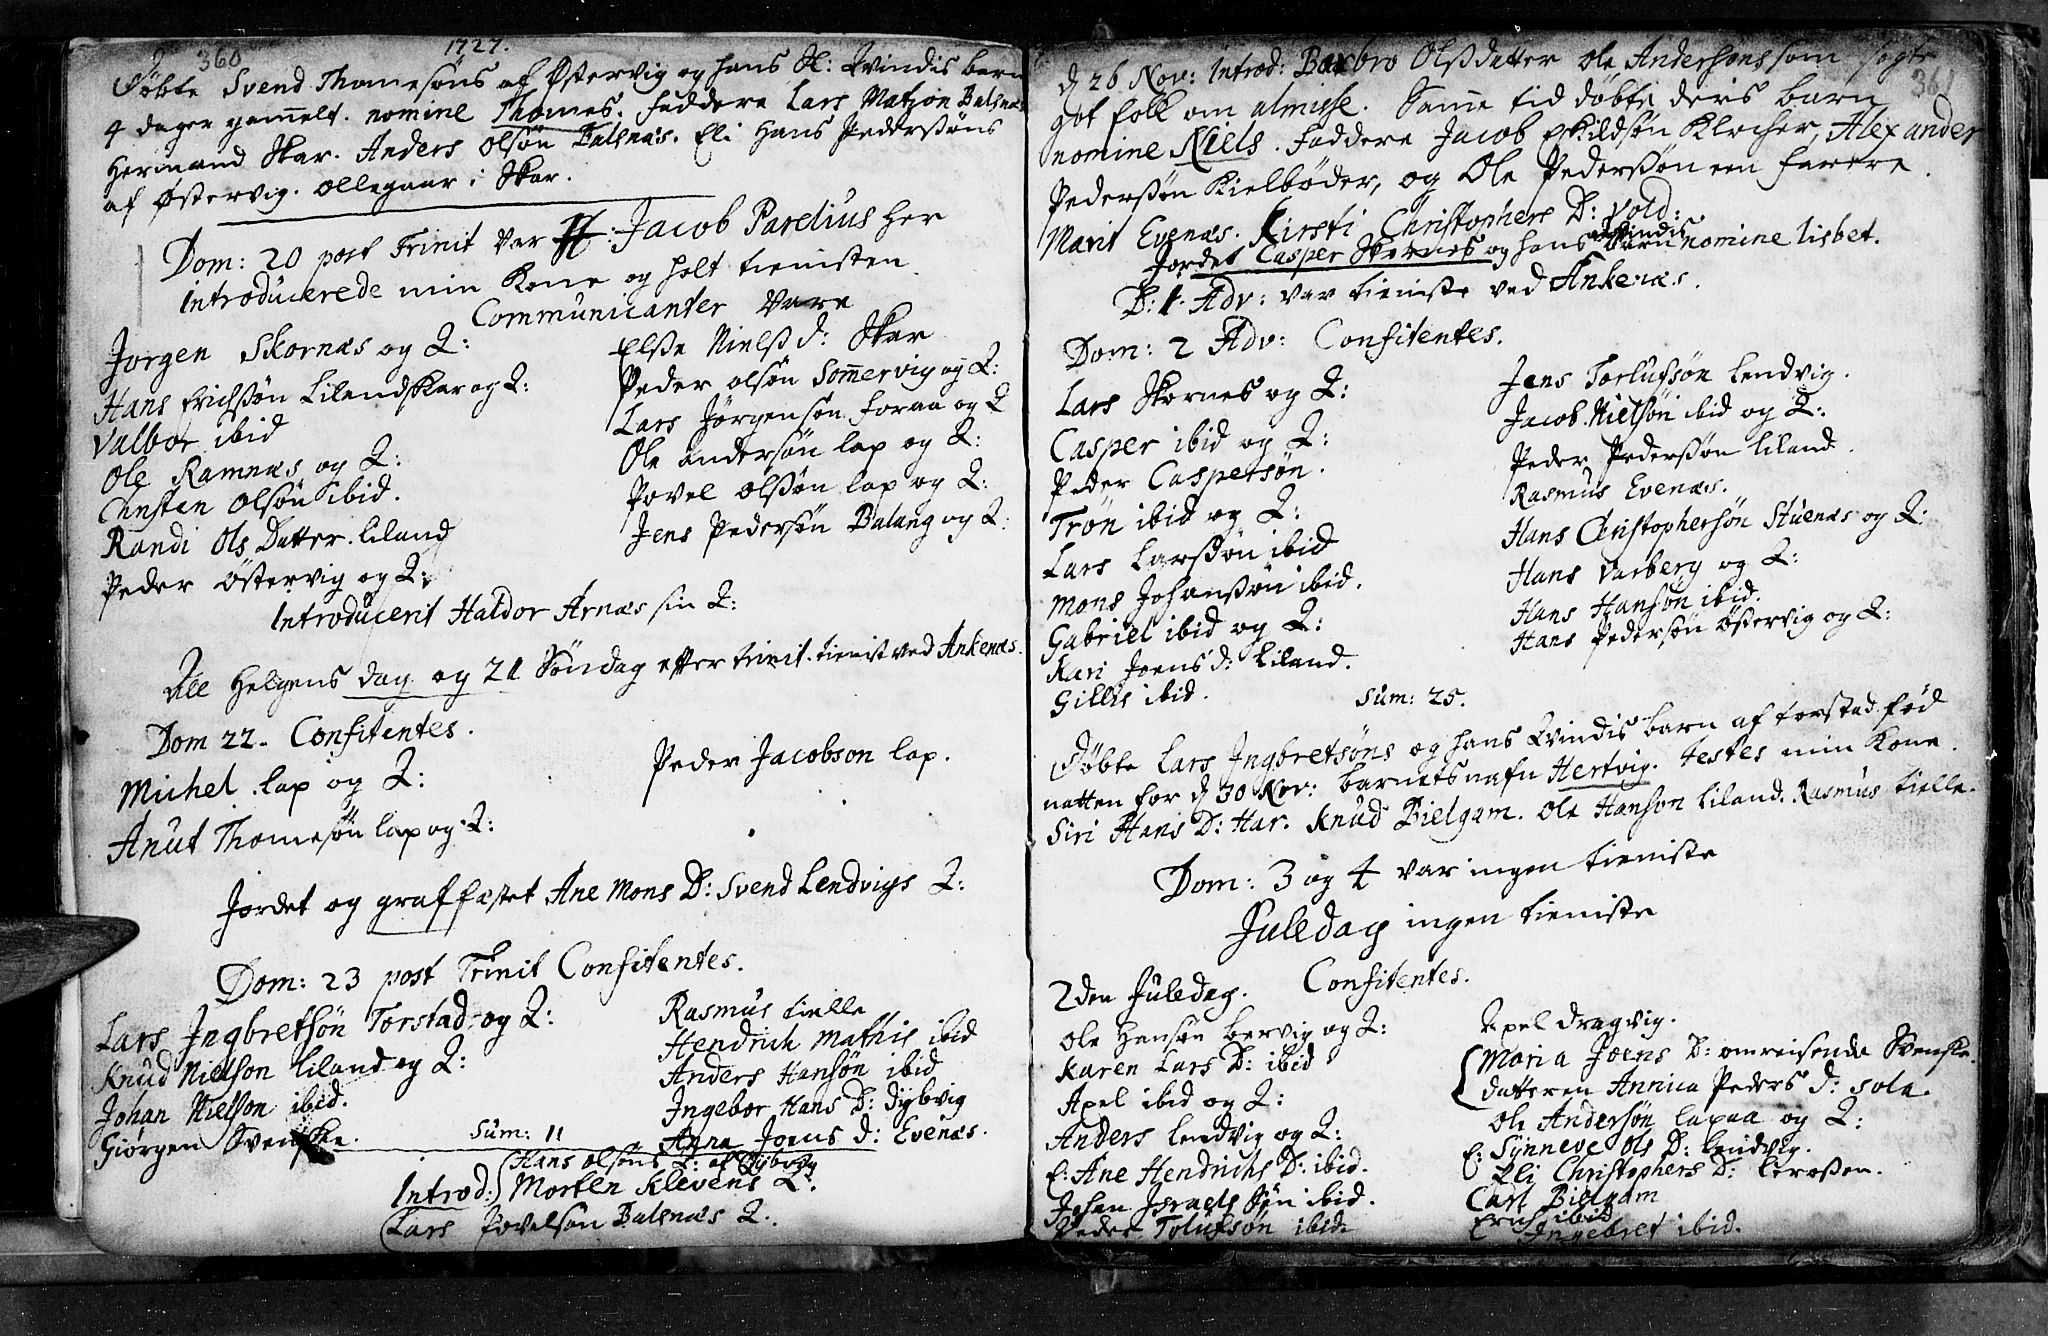 360
1727.
Døbte Svend Thomesøns af Østervig og hans Sl: Qvindis barn
4 dager gamelt. nomine Thomes. Faddere Lars Matzon Balsnæs
Hermand Skar. Anders Olsøn Balsnæs. Eli Hans Pedersøns
af Østervig. Ollegaar i Skar.
Dom: 20 post Trinit var H: Jacob Parelius her
introducerede min Kone og holt tienisten.
Communicanter vare
Jørgen Skornæs og Q:
Hans Erichsøn Lilandskar og Q:
Valbor ibid
Ole Ramnæs og Q:
Christen Olsøn ibid.
Randi Ols Datter Liland
Peder Østervig og Q:
Elsse Nielss d: Skar
Peder Olsøn Somervig og Q:
Lars Jørgensøn Foraa og Q
Ole andersøn lap og Q:
Povel Olssøn lap og Q:
Jens Pedersøn Balang og Q:
Introducerit Haldor Arnæs sin Q:
Alle Helgens dag og 21 Søndag efter trinit. tienist ved Ankenæs.
Dom 22. Confitentes.
Michel lap og Q:
Anut Thomesøn lap og Q:
Peder Jacobson lap.
Jordet og graffæstet Ane Mons D: Svend Lendvigs Q:
Dom: 23 post Trinit Confitentes.
Lars Ingbretsøn Torstad og Q:
Knud Nielson Liland og Q:
Johan Nielson ibid.
Giørgen Svenske.
Rasmus tielle
Hendrich Mathis ibid
Anders Hansøn ibid
Ingebor Hans D: Dybvig
Anna Joens d: Evenæs.
Sum: 11
Introd: Hans Olsøns Q: af Dybvig
Morten Klevens Q:
Lars Povelsøn Balsnæs Q:
361
d 26 Nov: Introd: Barbro Olssdatter Ole Andersøns som søgte
got folk om almisse. Same tid døbte ders barn
nomine Niels. Faddere Jacob Eskildsøn Klocher, Alexander
Pederssøn Kielbøder, og Ole Pederssøn een farere.
Marit Evenæs. Kirsti Christophers D: Vold:
Jordet Casper Skornes og hans Qvindis barn nomine lisbet.
D: 1. Adv: var tieniste ved Ankenæs.
Dom: 2 Adv: Confitentes.
Lars Skornes og Q:
Casper ibid og Q:
Peder Caspersøn.
Trøn ibid og Q:
Lars Larssøn ibid
Mons Johanssøn ibid.
Gabriel ibid og Q:
Kari Joens d: Liland.
Gillis ibid.
Jens Torlufsøn Lendvig.
Jacob Nielsøn ibid og Q:
Peder Pederssøn Liland.
Rasmus Evenæs.
Hans Christophersøn Stuenæs og Q:
Hans Varberg og Q:
Hans Hansøn ibid.
Hans Pedersøn Østervig og Q:
Sum: 25.
Døbte Lars Ingbretsøns og hans Qvindis barn af torstad. fød
natten for d 30 Nov: barnets nafn Hertvig. Testes min Kone.
Siri Hans D: Har. Knud Bielgam. Ole Hanson Liland. Rasmus tielle.
Dom: 3 og 4 var ingen tieniste
Juledag ingen tieniste
2den Juledag. Confitentes.
Ole Hansøn Bervig og Q:
Karen Lars D: ibid
Axel ibid og Q:
Anders Lendvig og Q:
E: Ane Hendrichs D: ibid.
Johan Israels Søn ibid.
Peder Tolufsøn ibid
Axel dragvig.
Maria Joens D: omreisende Svenske.
datteren Annica Peders d: sola.
Ole Andersøn Lapaa og Q:
E: Synneve Ols D: Lendvig.
Eli Christophers D: Lerossen.
Carl Bielgam
Erich ibid
Ingebret ibid.